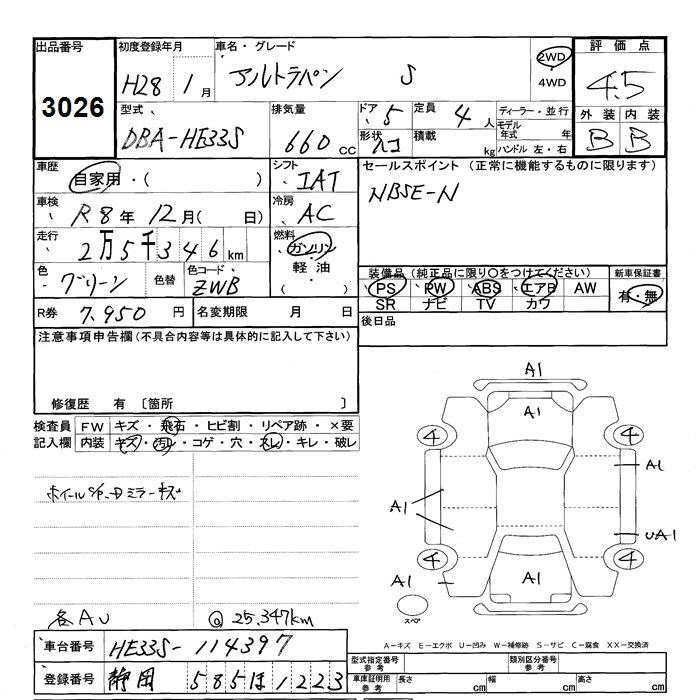 出品番号 初度登録年月 車名・グレード 評価点
3026 H28 1月 アルトラパン S 2WD 4.5
4WD
型式、 排気量 ドア 定員 ディーラー・並行 外装 内装
DBA-HE33S 660cc 5 4人 モデル年式 年 B B
形状 積載 kg ハンドル 左・右
車歴 シフト セールスポイント (正常に機能するものに限ります)
自家用・( ) IAT NBSE-N
車検 冷房
R8年12月( 日) AC
走行 燃料
2万5千346km ガソリン
軽油
・( )
色 色替 色コード 装備品 (純正品に限り○をつけてください) 新車保証書
グリーン ZWB PS PW ABS エアB AW 有・無
SR ナビ TV カワ
R券 7,950円 名変期限 月 日 後日品
注意事項申告欄(不具合内容等は具体的に記入して下さい)
修復歴 有 〔箇所 〕
検査員 FW キズ・飛石・ヒビ割・リペア跡・×要
記入欄 内装 キズ・汚レ・コゲ・穴・スレ・キレ・破レ
A1
A1
4 4
A1
A1
UA1
4 4
A1 A1
スペア
各AU @25,347km
A-キズ E-エクボ U-凹み W-補修跡 S-サビ C-腐食 XX-交換済
車台番号 HE33S-114397
登録番号 静岡 585ほ1223
型式指定番号 参考 類別区分番号 参考
車庫証明用 参考 長さ cm 幅 cm 高さ cm